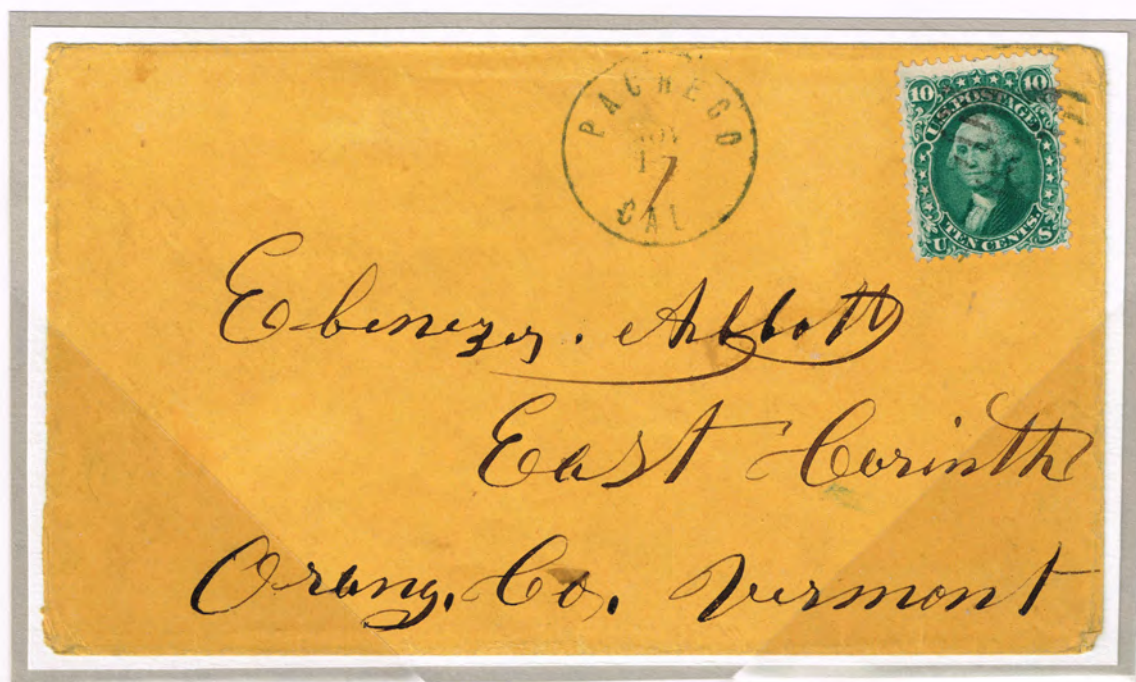 PACHECO
NOV
17
CAL
10 10
U.S. POSTAGE
TEN CENTS.
U S
Ebenezer. Abbott
East Corinth
Orang. Co. Vermont